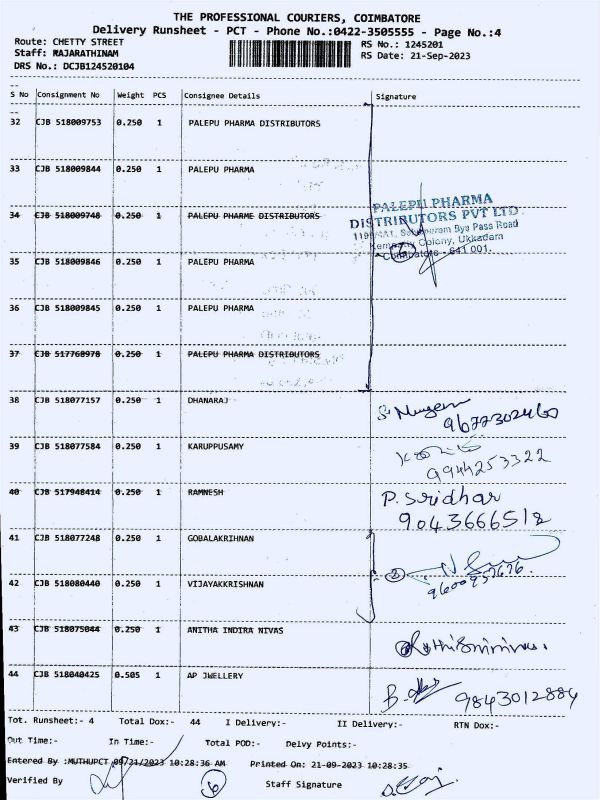 THE PROFESSIONAL COURIERS, COIMBATORE
Delivery Runsheet - PCT - Phone No.:0422-3505555 - Page No.:4
Route: CHETTY STREET RS No.: 1245201
Staff: RAJARATHINAM RS Date: 21-Sep-2023
DRS No.: DCJB124520104
S No Consignment No Weight PCS Consignee Details Signature
32 CJB 518009753 0.250 1 PALEPU PHARMA DISTRIBUTORS
33 CJB 518009844 0.250 1 PALEPU PHARMA
PALEPU PHARMA
34 CJB 518009748 0.250 1 PALEPU PHARME DISTRIBUTORS DISTRIBUTORS PVT LTD
Bye Pass Road
Colony, Ukkadam
Coimbatore - 641 001.
35 CJB 518009846 0.250 1 PALEPU PHARMA
36 CJB 518009845 0.250 1 PALEPU PHARMA
37 CJB 517768978 0.250 1 PALEPU PHARMA DISTRIBUTORS
38 CJB 518077157 0.250 1 DHANARAJ
9677302460
39 CJB 518077584 0.250 1 KARUPPUSAMY
9944253322
40 CJB 517948414 0.250 1 RAMNESH P. Sridhar
9043666518
41 CJB 518077248 0.250 1 GOBALAKRIHNAN
42 CJB 518080440 0.250 1 VIJAYAKKRISHNAN 2
43 CJB 518075044 0.250 1 ANITHA INDIRA NIVAS
44 CJB 518040425 0.505 1 AP JWELLERY 9843012884
Tot. Runsheet:- 4 Total Dox:- 44 I Delivery:- II Delivery:- RTN Dox:-
Out Time:- In Time:- Total POD:- Delvy Points:-
Entered By :MUTHUPCT 09/21/2023 10:28:36 AM Printed On: 21-09-2023 10:28:35
Verified By 6 Staff Signature